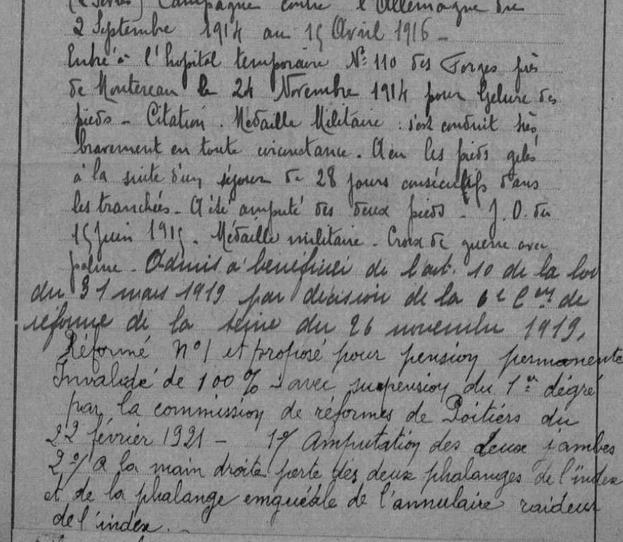 Campagne contre l'Allemagne du
2 Septembre 1914 au 15 Avril 1916 -
Entré à l'hopital temporaire N° 110 des Forges près
de Montereau le 24 Novembre 1914 pour Gelure des
pieds - Citation. Médaille Militaire : s'est conduit très
bravement en toute circonstance. A eu les pieds gelés
à la suite d'un séjour de 28 jours consécutifs dans
les tranchées. A été amputé des deux pieds - J.O. du
15 juin 1915. Médaille militaire - Croix de guerre avec
palme - Admis à bénéficier de l'art. 10 de la loi
du 31 mars 1919 par décision de la 6e Con de
réforme de la Seine du 26 novembre 1919.
Réformé N°1 et proposé pour pension permanente
Invalidé de 100% avec suspension du 1er dégré
par la commission de réformes de Poitiers du
22 février 1921 - 1°/ Amputation des deux jambes
2°/ A la main droite perte des deux phalanges de l'index
et de la phalange unguéale de l'annulaire raideur
de l'index.